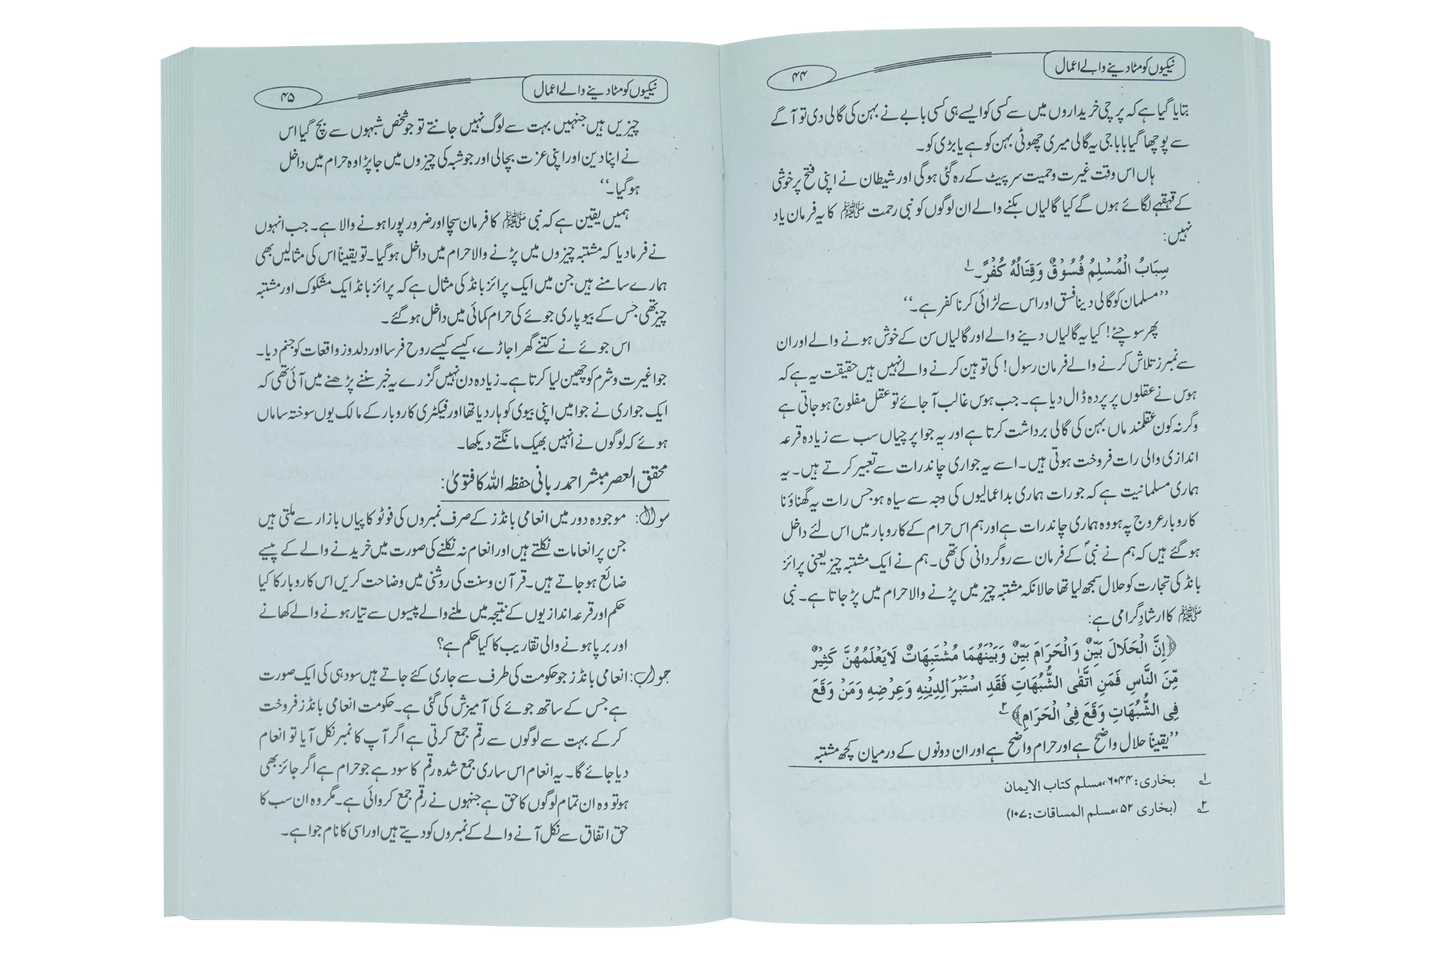 نیکیوں کو مٹا دینے والے اعمال
۴۴
بتایا گیا ہے کہ پرچی خریداروں میں سے کسی کو ایسے ہی کسی بابے نے بہن کی گالی دی تو آگے
سے پوچھا گیا بابا جی یہ گالی میری چھوٹی بہن کو ہے یا بڑی کو۔
ہاں اس وقت غیرت و حمیت سر پیٹ کے رہ گئی ہوگی اور شیطان نے اپنی فتح پر خوشی
کے قہقہے لگائے ہوں گے کیا گالیاں بکنے والے ان لوگوں کو نبی رحمت ﷺ کا یہ فرمان یاد
نہیں:
سِبَابُ الْمُسْلِمُ فُسُوْقٌ وَقِتَالُهُ كُفْرٌ۔ ۱
’’مسلمان کو گالی دینا فسق اور اس سے لڑائی کرنا کفر ہے۔‘‘
پھر سوچئے! کیا یہ گالیاں دینے والے اور گالیاں سن کے خوش ہونے والے اور ان
سے نمبرز تلاش کرنے والے فرمان رسول! کی توہین کرنے والے نہیں ہیں حقیقت یہ ہے کہ
ہوس نے عقلوں پر پردہ ڈال دیا ہے۔ جب ہوس غالب آ جائے تو عقل مفلوج ہو جاتی ہے
وگرنہ کون عقلمند ماں بہن کی گالی برداشت کرتا ہے اور یہ جوا پرچیاں سب سے زیادہ قرعہ
اندازی والی رات فروخت ہوتی ہیں۔ اسے یہ جواری چاند رات سے تعبیر کرتے ہیں۔ یہ
ہماری مسلمانیت ہے کہ جو رات ہماری بداعمالیوں کی وجہ سے سیاہ ہو جس رات یہ گھناؤنا
کاروبار عروج پہ ہو وہ ہماری چاند رات ہے اور ہم اس حرام کے کاروبار میں اس لئے داخل
ہوگئے ہیں کہ ہم نے نبیؐ کے فرمان سے روگردانی کی تھی۔ ہم نے ایک مشتبہ چیز یعنی پرائز
بانڈ کی تجارت کو حلال سمجھ لیا تھا حالانکہ مشتبہ چیز میں پڑنے والا حرام میں پڑ جاتا ہے۔ نبی
ﷺ کا ارشاد گرامی ہے:
﴿إِنَّ الْحَلَالَ بَيِّنٌ وَالْحَرَامَ بَيِّنٌ وَبَيْنَهُمَا مُشْتَبِهَاتٌ لَايَعْلَمُهُنَّ كَثِيْرٌ
مِّنَ النَّاسِ فَمَنِ اتَّقَى الشُّبُهَاتِ فَقَدِ اسْتَبْرَاَلِدِيْنِهٖ وَعِرْضِهٖ وَمَنْ وَقَعَ
فِى الشُّبُهَاتِ وَقَعَ فِى الْحَرَامِ﴾ ۲
’’یقیناً حلال واضح ہے اور حرام واضح ہے اور ان دونوں کے درمیان کچھ مشتبہ
۱ بخاری: ۶۰۴۴، مسلم کتاب الایمان
۲ (بخاری ۵۲، مسلم المساقات: ۱۰۷)
نیکیوں کو مٹا دینے والے اعمال
۴۵
چیزیں ہیں جنہیں بہت سے لوگ نہیں جانتے تو جو شخص شبہوں سے بچ گیا اس
نے اپنا دین اور اپنی عزت بچالی اور جو شبہ کی چیزوں میں جا پڑا وہ حرام میں داخل
ہوگیا۔‘‘
ہمیں یقین ہے کہ نبی ﷺ کا فرمان سچا اور ضرور پورا ہونے والا ہے۔ جب انہوں
نے فرما دیا کہ مشتبہ چیزوں میں پڑنے والا حرام میں داخل ہوگیا۔ تو یقیناً اس کی مثالیں بھی
ہمارے سامنے ہیں جن میں ایک پرائز بانڈ کی مثال ہے کہ پرائز بانڈ ایک مشکوک اور مشتبہ
چیز تھی جس کے بیوپاری جوئے کی حرام کمائی میں داخل ہوگئے۔
اس جوئے نے کتنے گھر اجاڑے، کیسے کیسے روح فرسا اور دلدوز واقعات کو جنم دیا۔
جوا غیرت و شرم کو چھین لیا کرتا ہے۔ زیادہ دن نہیں گزرے یہ خبر سننے پڑھنے میں آئی تھی کہ
ایک جواری نے جوا میں اپنی بیوی کو ہار دیا تھا اور فیکٹری کاروبار کے مالک یوں سوختہ ساماں
ہوئے کہ لوگوں نے انہیں بھیک مانگتے دیکھا۔
محقق العصر مبشر احمد ربانی حفظہ اللہ کا فتویٰ:
سوال: موجودہ دور میں انعامی بانڈز کے صرف نمبروں کی فوٹو کاپیاں بازار سے ملتی ہیں
جن پر انعامات نکلتے ہیں اور انعام نہ نکلنے کی صورت میں خریدنے والے کے پیسے
ضائع ہو جاتے ہیں۔ قرآن وسنت کی روشنی میں وضاحت کریں اس کاروبار کا کیا
حکم اور قرعہ اندازیوں کے نتیجہ میں ملنے والے پیسوں سے تیار ہونے والے کھانے
اور برپا ہونے والی تقاریب کا کیا حکم ہے؟
جواب: انعامی بانڈز جو حکومت کی طرف سے جاری کئے جاتے ہیں سود ہی کی ایک صورت
ہے جس کے ساتھ جوئے کی آمیزش کی گئی ہے۔ حکومت انعامی بانڈز فروخت
کرکے بہت سے لوگوں سے رقم جمع کرتی ہے اگر آپ کا نمبر نکل آیا تو انعام
دیا جائے گا۔ یہ انعام اس ساری جمع شدہ رقم کا سود ہے جو حرام ہے اگر جائز بھی
ہو تو وہ ان تمام لوگوں کا حق ہے جنہوں نے رقم جمع کروائی ہے۔ مگر وہ ان سب کا
حق اتفاق سے نکل آنے والے کے نمبروں کو دیتے ہیں اور اسی کا نام جوا ہے۔